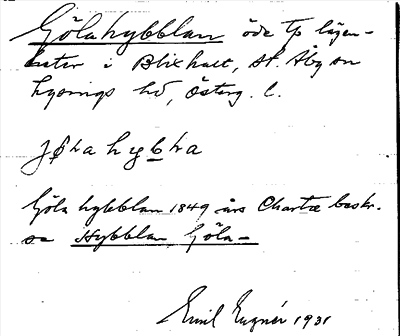 Gölahybblan öde tp lägen-
heter i Blixhult, St. Åby sn
Lysings hd, Österg. l.
Göla hybblan 1849 års Charta beskr.
se Hybblan Göla-
Emil Eugnér 1931